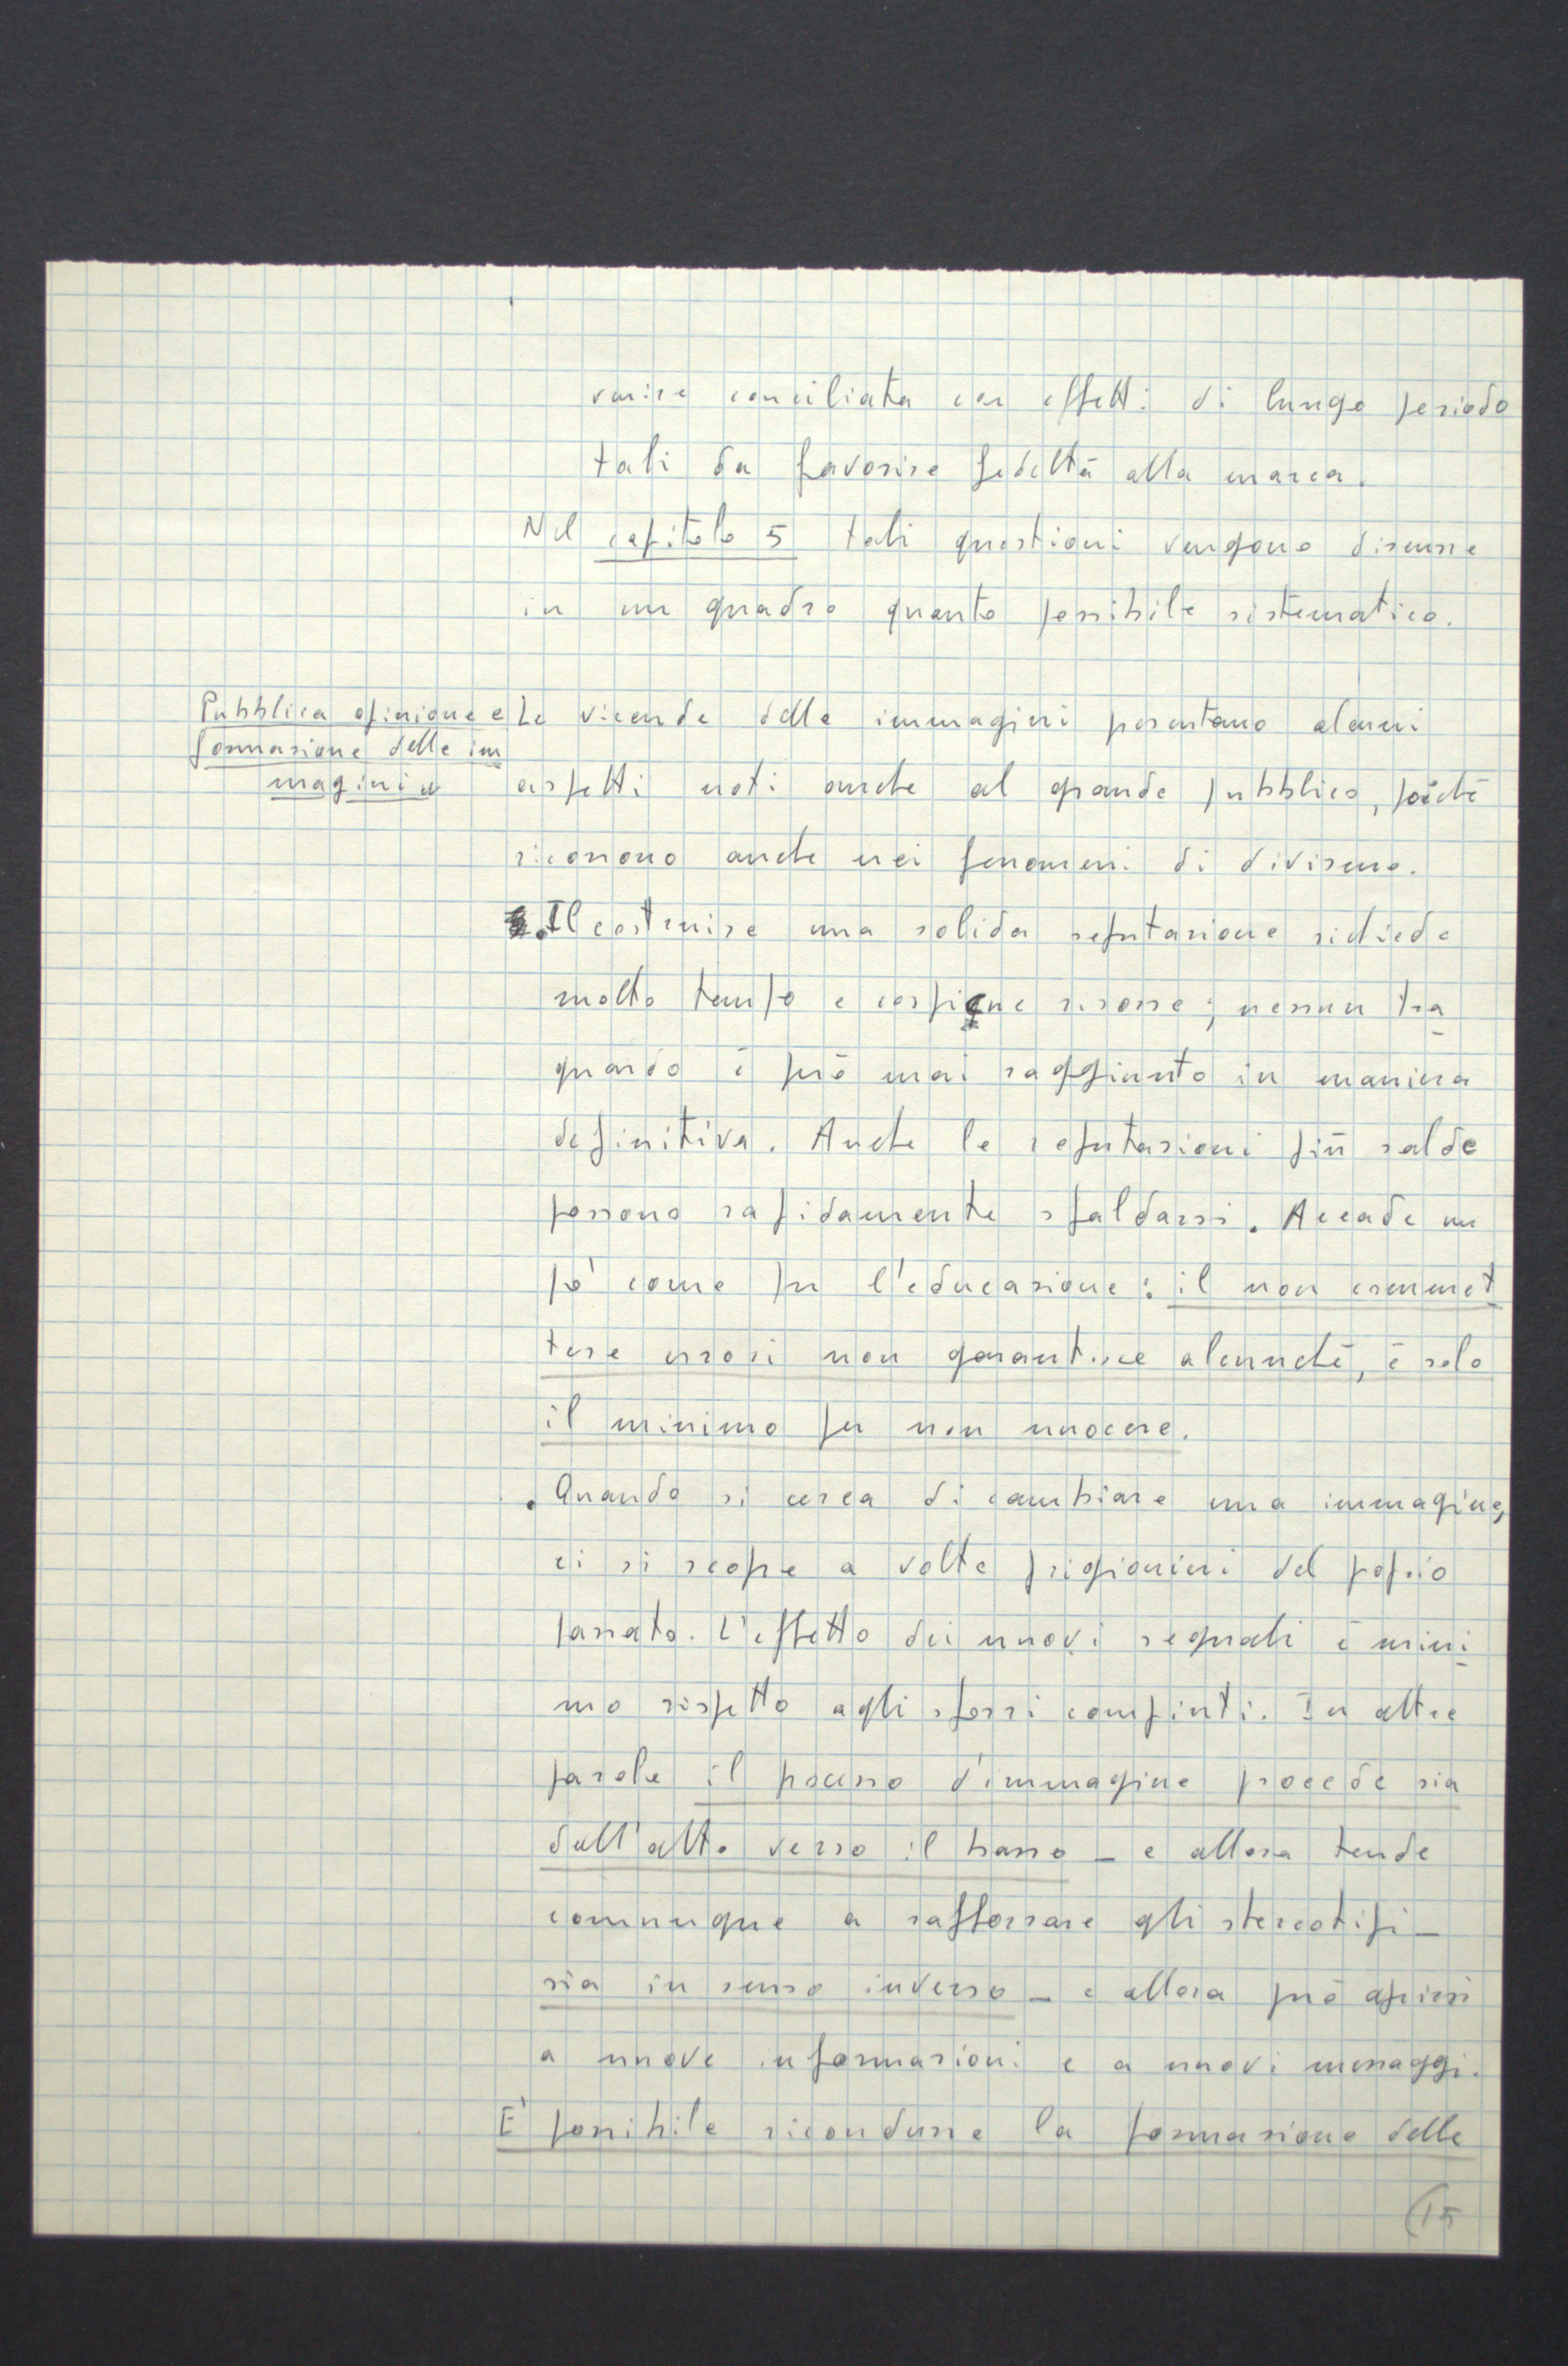 venire conciliata con effetti di lungo periodo
tali da favorire fedeltà alla marca.
Nel capitolo 5 tali questioni vengono discusse
in un quadro quanto possibile sistematico.
Pubblica opinione e
formazione delle im
magini
Le vicende delle immagini presentano alcuni
aspetti noti anche al grande pubblico, poiché
ricorrono anche nei fenomeni di divismo.
. Il costruire una solida reputazione richiede
molto tempo e cospicue risorse; nessun tra
guardo è però mai raggiunto in maniera
definitiva. Anche le reputazioni più salde
possono rapidamente sfaldarsi. Accade un
pò come per l'educazione: il non commet
tere errori non garantisce alcunché, è solo
il minimo per non nuocere.
. Quando si cerca di cambiare una immagine,
ci si scopre a volte prigionieri del proprio
passato. L'effetto dei nuovi segnali è mini
mo rispetto agli sforzi compiuti. In altre
parole il processo d'immagine procede sia
dall'alto verso il basso – e allora tende
comunque a rafforzare gli stereotipi –
sia in senso inverso – e allora può aprirsi
a nuove informazioni e a nuovi messaggi.
E' possibile ricondurre la formazione delle
(15